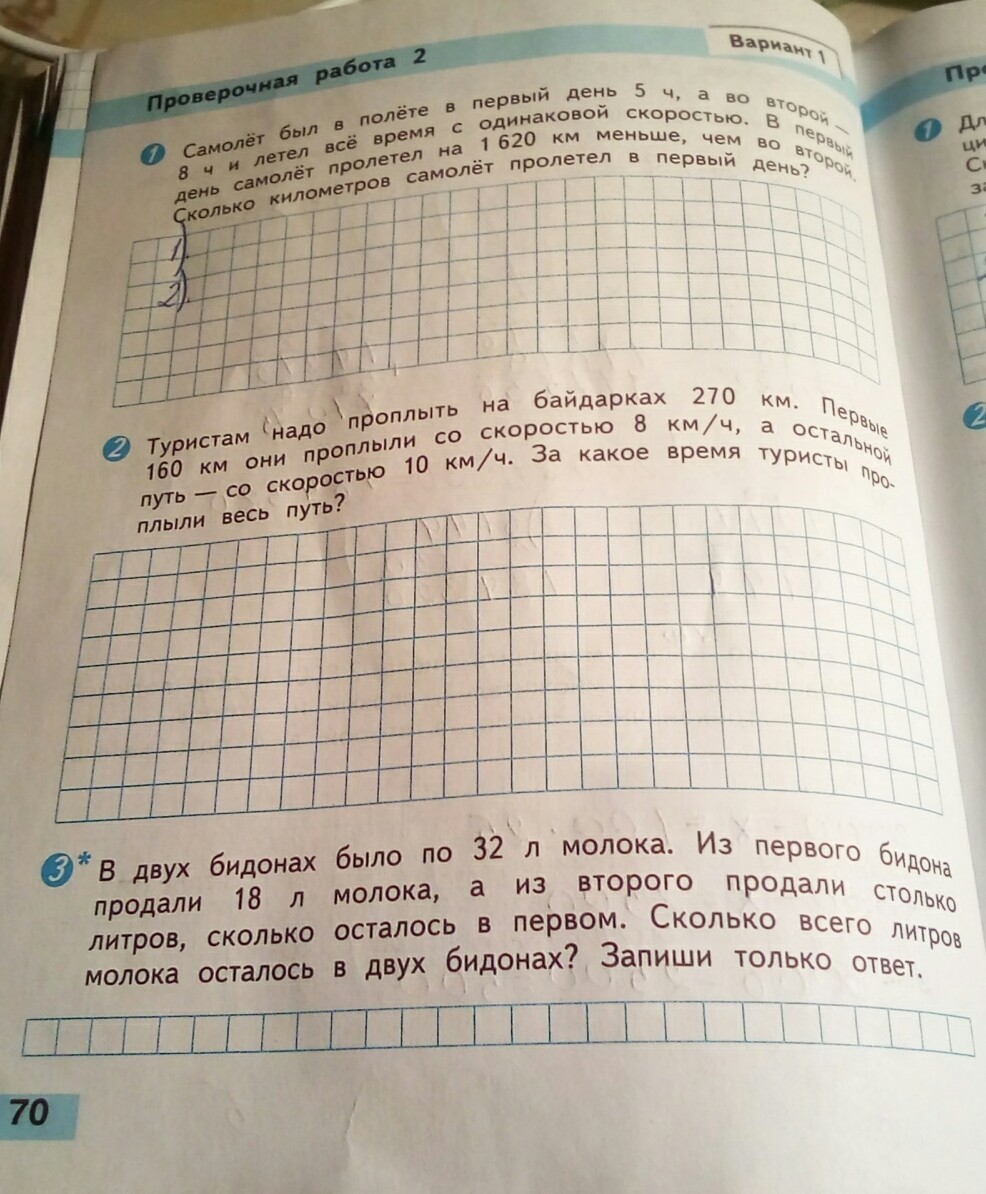 Проверочная работа 2
Вариант 1
1 Самолёт был в полёте в первый день 5 ч, а во второй —
8 ч и летел всё время с одинаковой скоростью. В первый
день самолёт пролетел на 1 620 км меньше, чем во второй.
Сколько километров самолёт пролетел в первый день?
1)
2)
2 Туристам надо проплыть на байдарках 270 км. Первые
160 км они проплыли со скоростью 8 км/ч, а остальной
путь — со скоростью 10 км/ч. За какое время туристы про-
плыли весь путь?
3* В двух бидонах было по 32 л молока. Из первого бидона
продали 18 л молока, а из второго продали столько
литров, сколько осталось в первом. Сколько всего литров
молока осталось в двух бидонах? Запиши только ответ.
70
Пр
1 Дл
ци
С
за
2